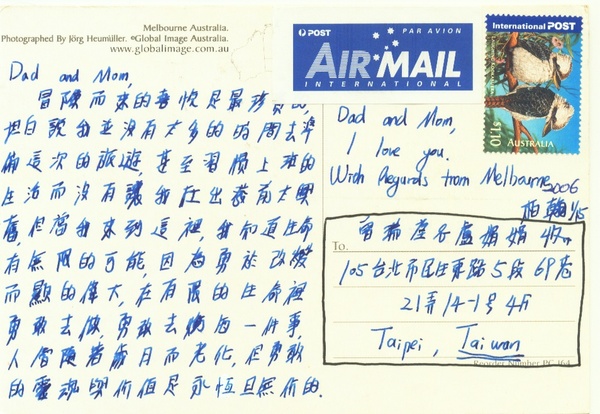 Melbourne Australia.
Photographed By Jörg Heumüller. ©Global Image Australia.
www.globalimage.com.au
POST PAR AVION
AIR MAIL
INTERNATIONAL
International POST
$1.10
AUSTRALIA
Dad and Mom,
冒險而來的喜悅是最珍貴的,
坦白說我並沒有太多的時間去準
備這次的旅遊,甚至習慣上班的
生活而沒有讓我在出發前太興
奮,但當我來到這裡,我知道生命
有無限的可能,因為勇於改變
而顯的偉大,在有限的生命裡
勇敢去做,勇敢去 每一件事,
人會隨著歲月而老化,但勇敢
的靈魂與价值是永恒且無价的.
Dad and Mom,
I love you.
With Regards from Melbourne
2006
柏翰 1/15
To. 曾 盧娟娟 收
105台北市民生東路5段69巷
21弄14-1号4F
Taipei, Taiwan
Reorder Number PC 164